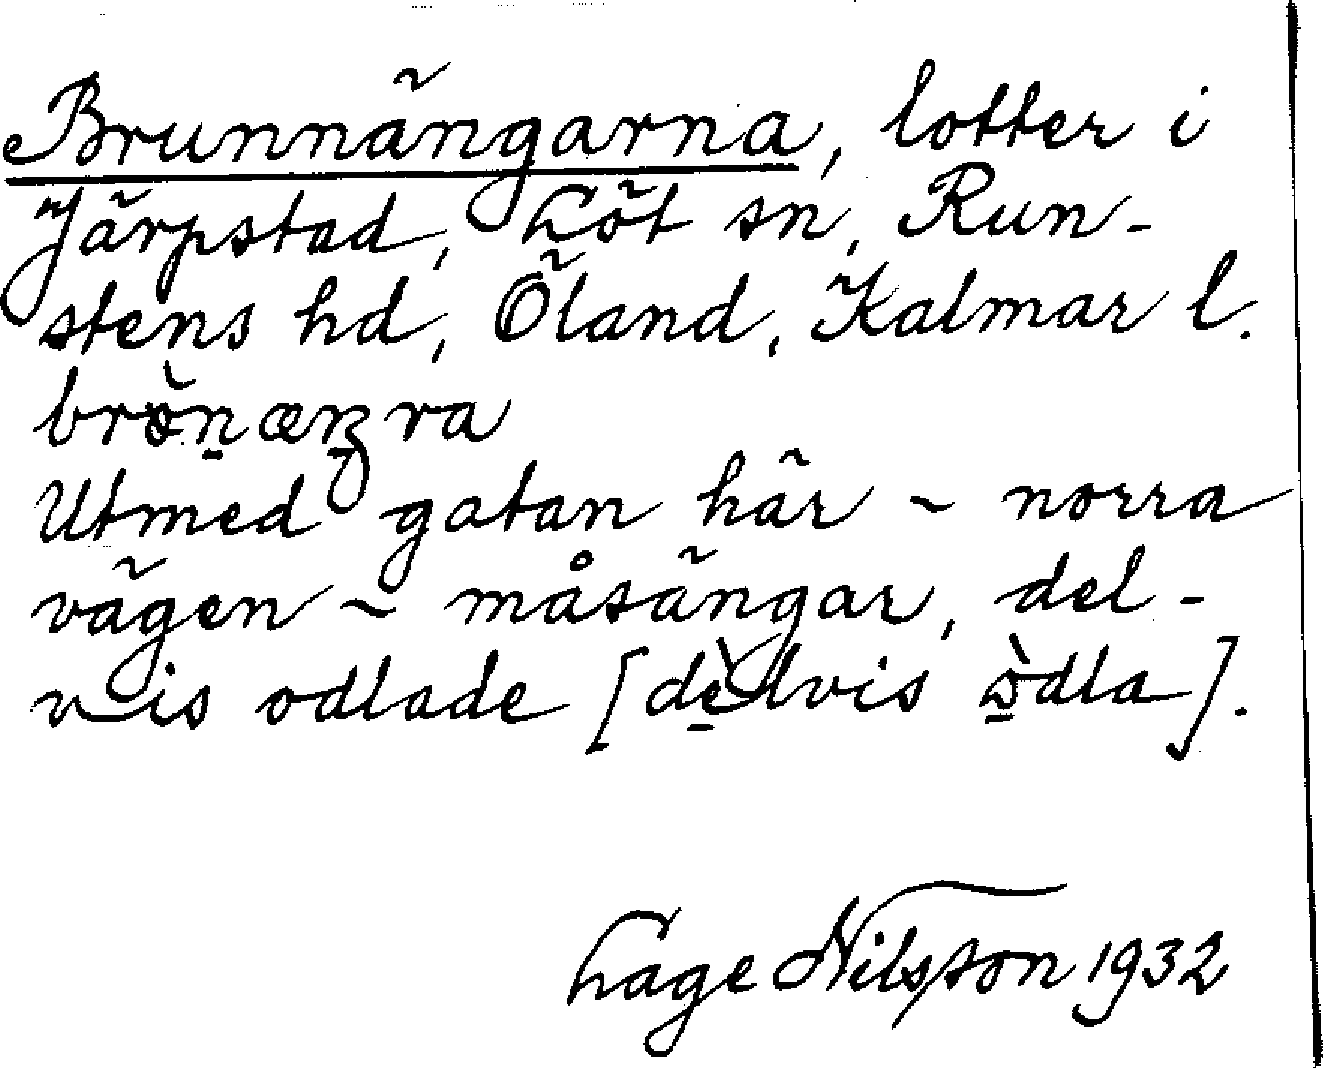 Brunnängarna, lotter i
Järpstad, Löt sn, Run-
stens hd, Öland, Kalmar l.
brò̱n̠æŋra
Utmed gatan här ~ norra
vägen ~ måsängar, del-
vis odlade [dè̱lvis ò̱dla].
Lage Nilsson 1932